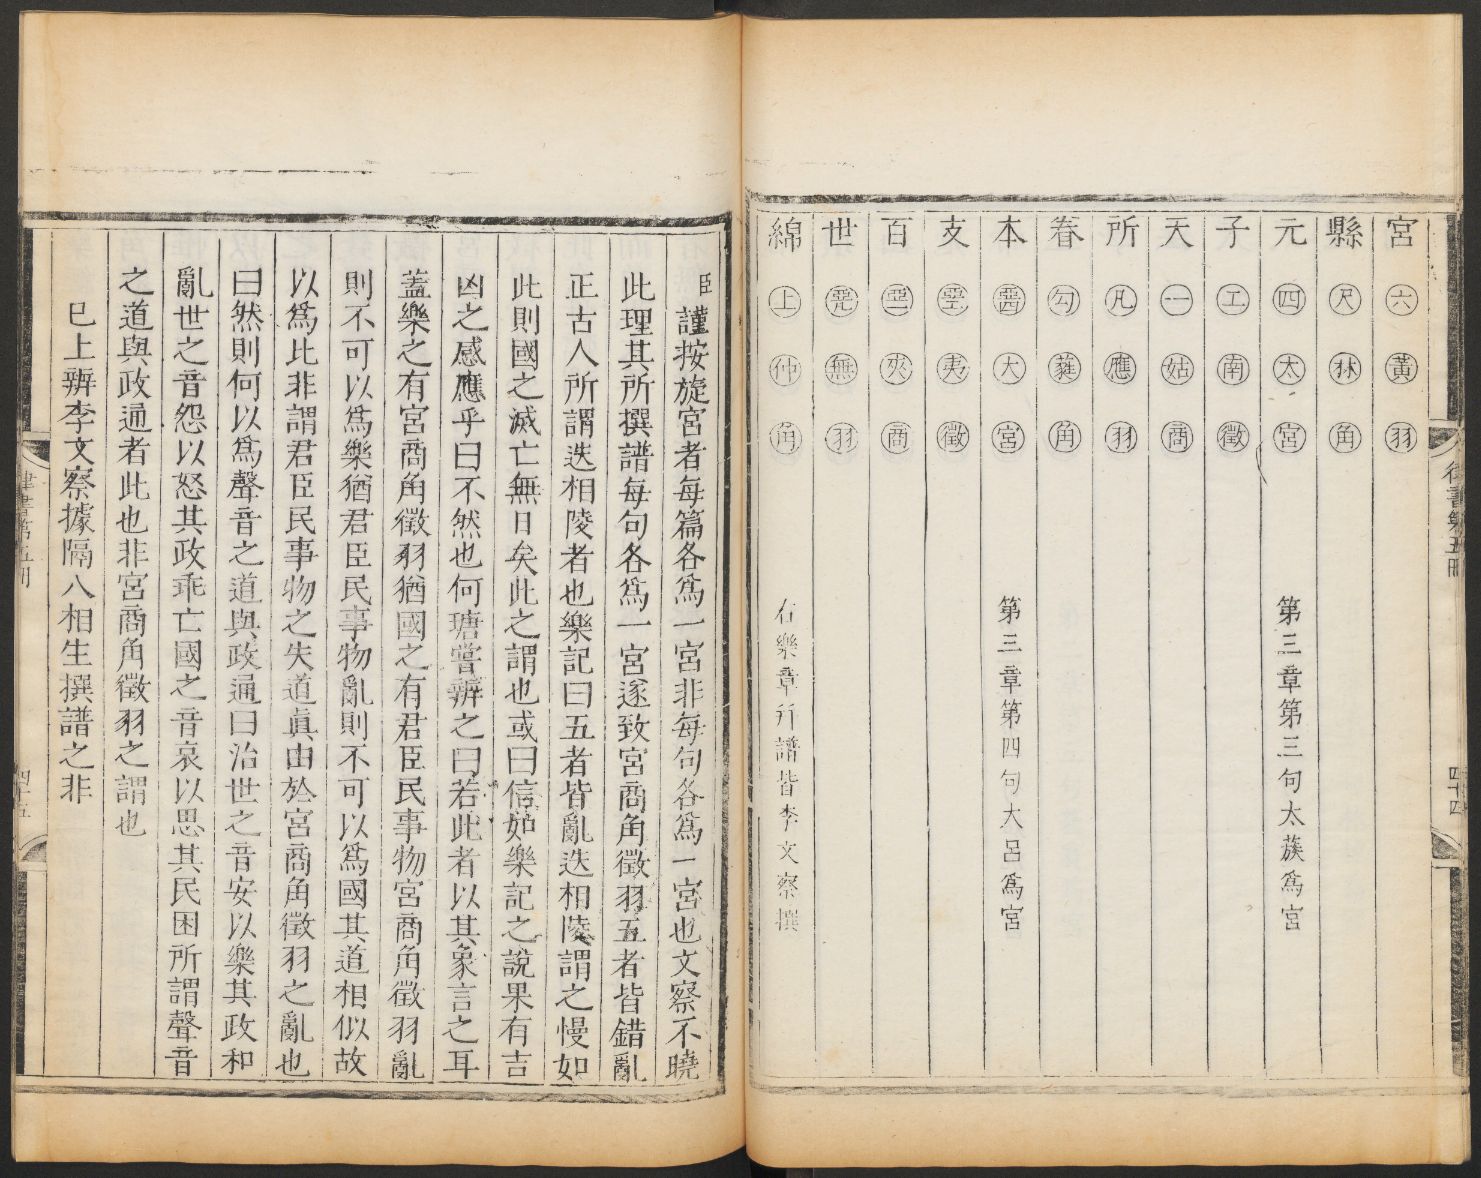 宮 六 黃 羽
縣 尺 林 角
元 四 太 宮 第三章第三句太蔟爲宮
子 工 南 徵
天 一 姑 商
所 凡 應 羽
眷 勾 蕤 角
本 𠮓 大 宮 第三章第四句大呂爲宮
支 夷 徵
百 夾 商
世 無 羽
綿 上 仲 角 右樂章并譜皆李文察撰
律書第五冊 四十四
臣謹按旋宮者每篇各爲一宮非每句各爲一宮也文察不曉
此理其所撰譜每句各爲一宮遂致宮商角徵羽五者皆錯亂
正古人所謂迭相陵者也樂記曰五者皆亂迭相陵謂之慢如
此則國之滅亡無日矣此之謂也或曰信如樂記之說果有吉
凶之感應乎曰不然也何瑭嘗辨之曰若此者以其象言之耳
蓋樂之有宮商角徵羽猶國之有君臣民事物宮商角徵羽亂
則不可以爲樂猶君臣民事物亂則不可以爲國其道相似故
以爲比非謂君臣民事物之失道真由於宮商角徵羽之亂也
曰然則何以爲聲音之道與政通曰治世之音安以樂其政和
亂世之音怨以怒其政乖亡國之音哀以思其民困所謂聲音
之道與政通者此也非宮商角徵羽之謂也
已上辨李文察據隔八相生撰譜之非
律書第五冊 四十五